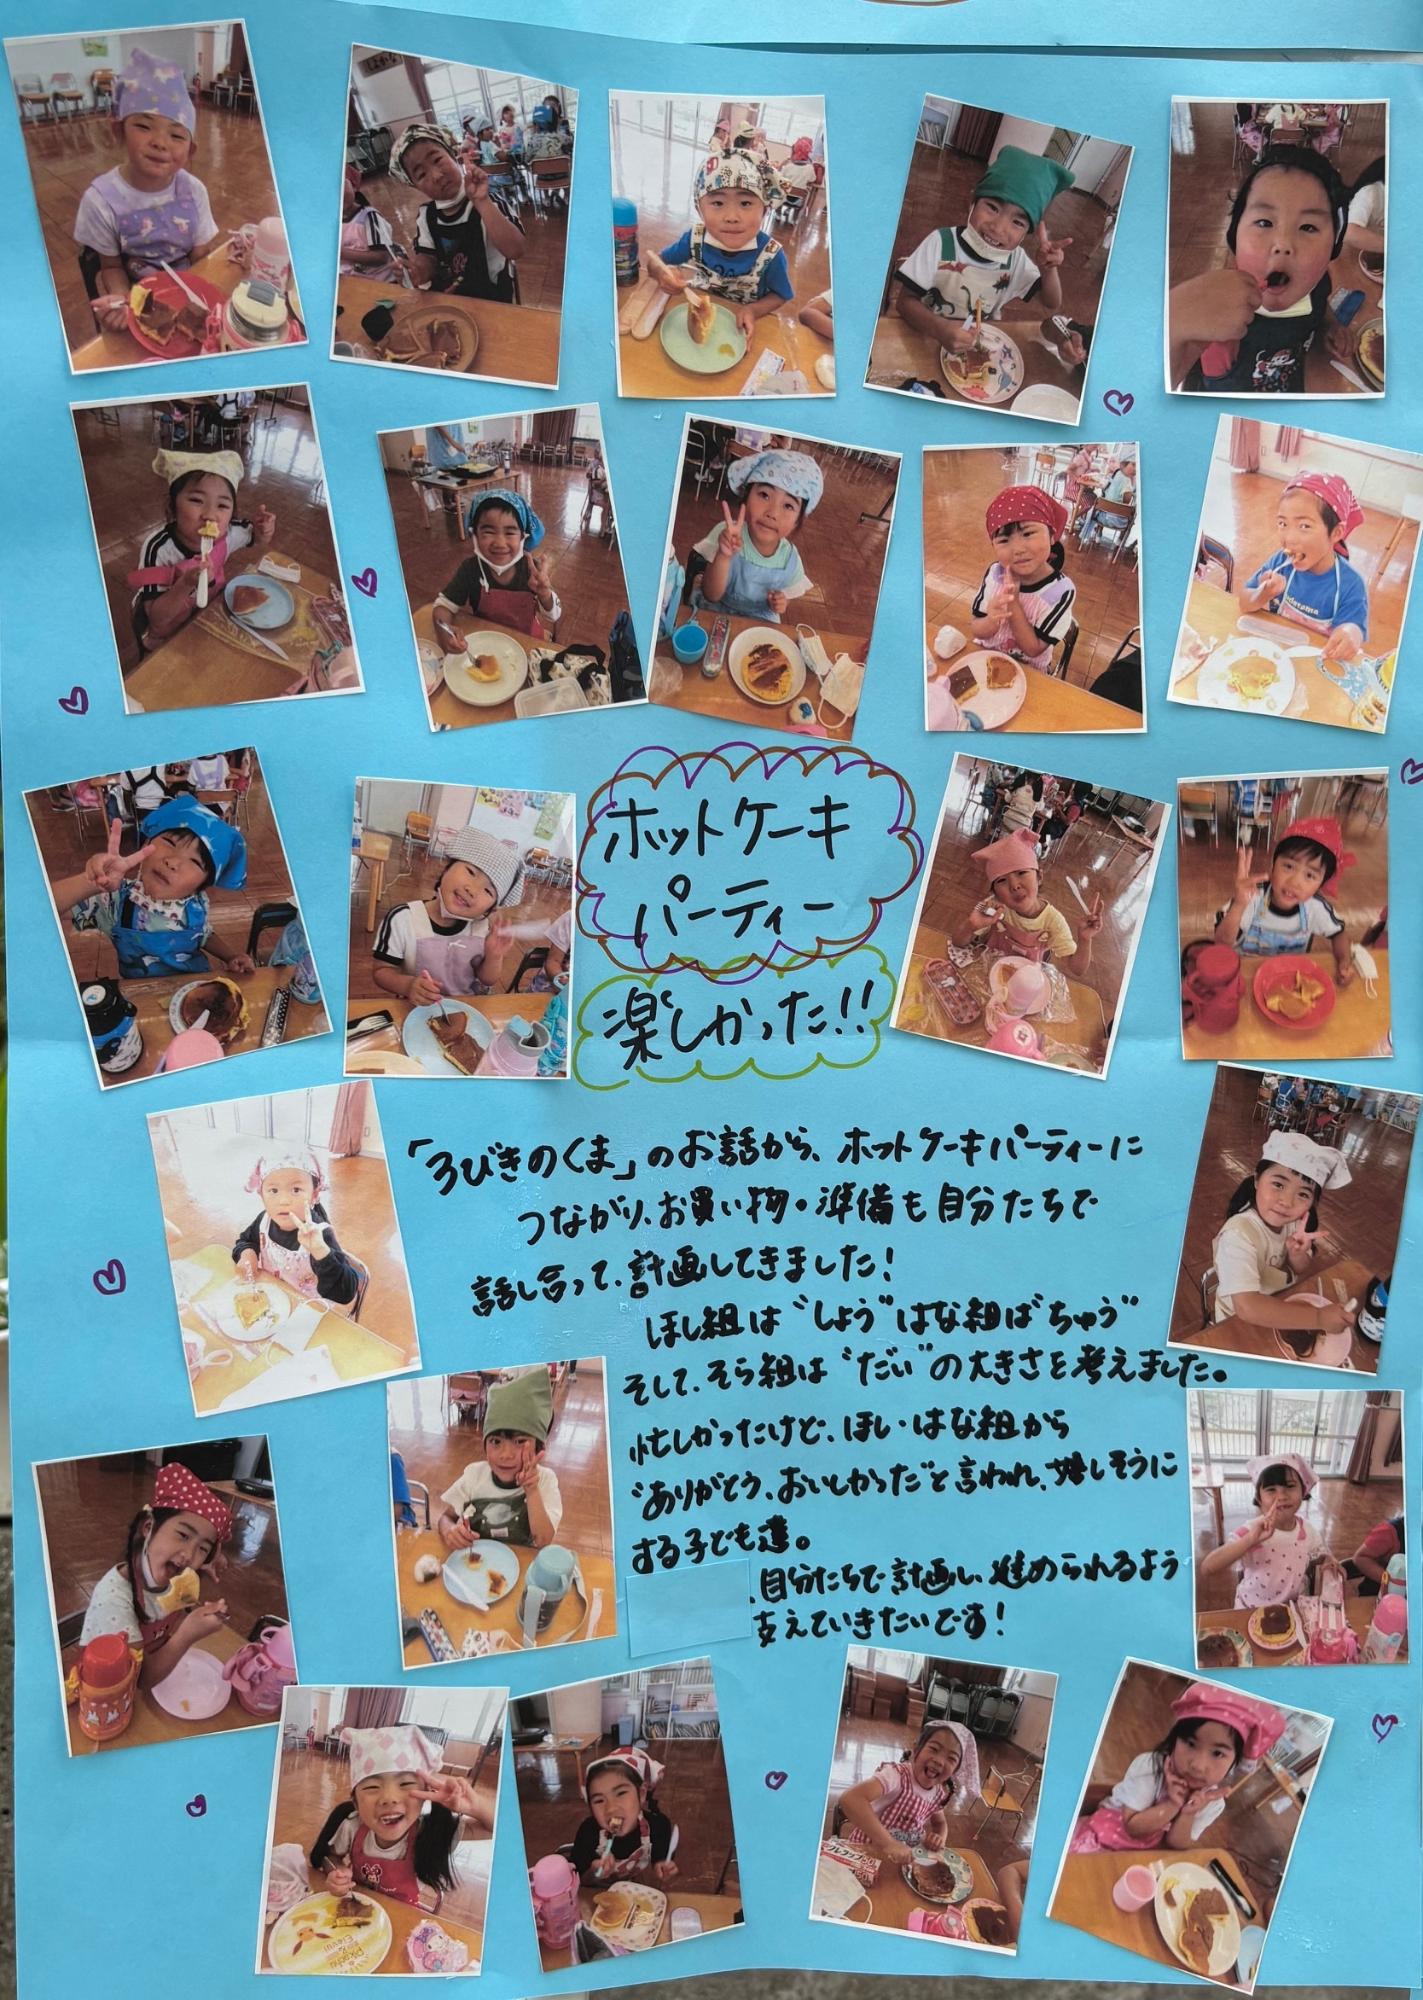 ホットケーキ
パーティー
楽しかった!!
「3びきのくま」のお話から、ホットケーキパーティーに
つながり、お買い物・準備も自分たちで
話し合って、計画してきました!
ほし組は“しょう”はな組は“ちゅう”
そして、そら組は“だい”の大きさを考えました。
忙しかったけど、ほし・はな組から
“ありがとう、おいしかった”と言われ、嬉しそうに
する子ども達。
、自分たちで計画し、進められるよう
支えていきたいです!